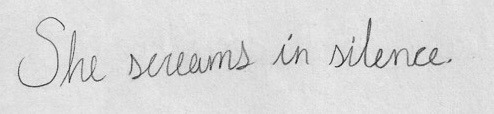 She screams in silence.